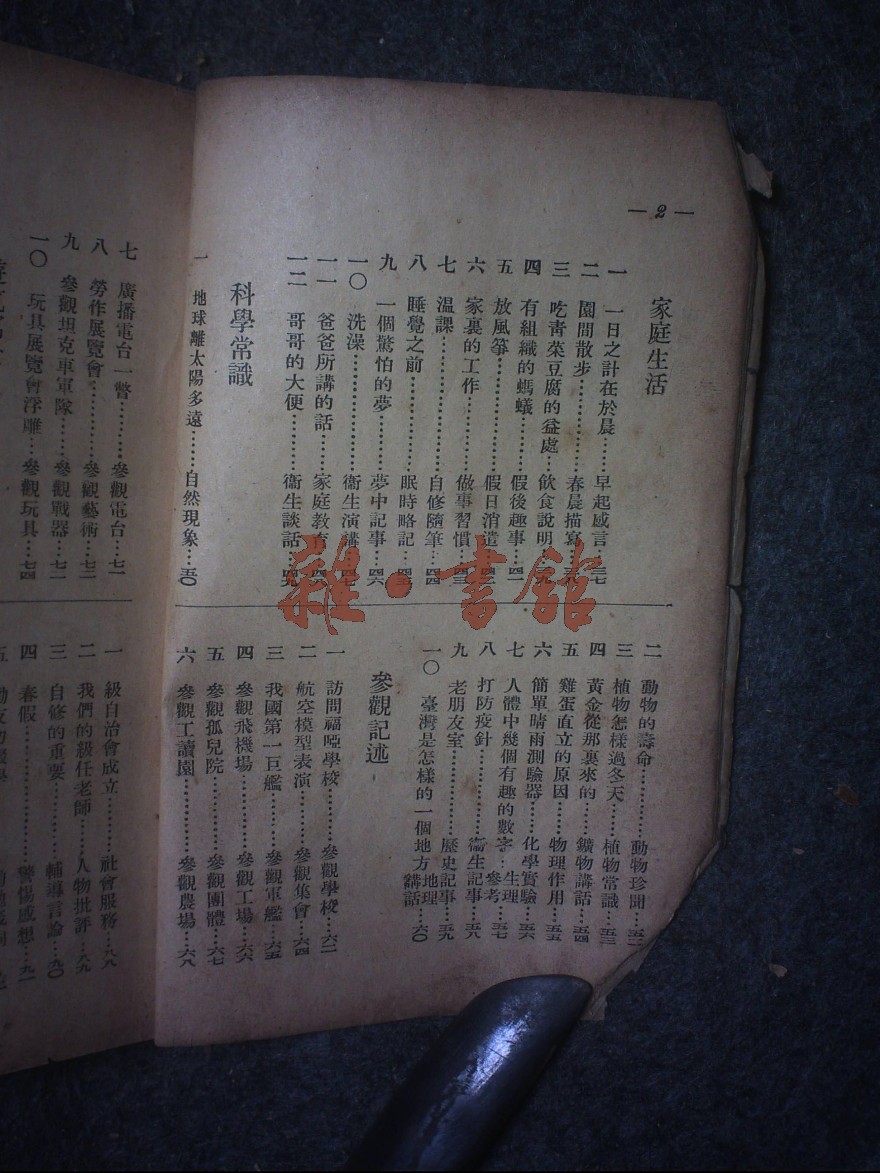 — 2 —
家庭生活
一 一日之計在於晨……早起感言…三七
二 園間散步……春晨描寫…三八
三 吃靑菜豆腐的益處…飲食說明…三九
四 有組織的螞蟻……假後趣事…四一
五 放風箏……假日消遣…四二
六 家裏的工作……做事習慣…四三
七 温課……自修隨筆…四四
八 睡覺之前……眠時略記…四五
九 一個驚怕的夢……夢中記事…四六
一〇 洗澡……衞生演講…四七
一一 爸爸所講的話……家庭教育…四八
一二 哥哥的大便……衞生談話…四九
科學常識
一 地球離太陽多遠……自然現象…五〇
二 動物的壽命……動物珍聞…五二
三 植物怎樣過冬天…植物常識…五三
四 黃金從那裏來的…鑛物講話…五四
五 雞蛋直立的原因…物理作用…五五
六 簡單晴雨測驗器…化學實驗…五六
七 人體中幾個有趣的數字…生理參考…五七
八 打防疫針……衞生記事…五八
九 老朋友室……歷史記事…五九
一〇 臺灣是怎樣的一個地方 地理講話…六〇
參觀記述
一 訪問福啞學校…參觀學校…六二
二 航空模型表演…參觀集會…六四
三 我國第一巨艦…參觀軍艦…六五
四 參觀飛機場……參觀工場…六六
五 參觀孤兒院……參觀團體…六七
六 參觀工讀園……參觀農場…六八
七 廣播電台一瞥……參觀電台…七一
八 勞作展覽會……參觀藝術…七二
九 參觀坦克車軍隊…參觀戰器…七三
一〇 玩具展覽會浮雕…參觀玩具…七四
一 級自治會成立……社會服務…八八
二 我們的級任老師…人物批評…八九
三 自修的重要……輔導言論…九〇
四 春假……警惕感想…九一
五
雜·書館